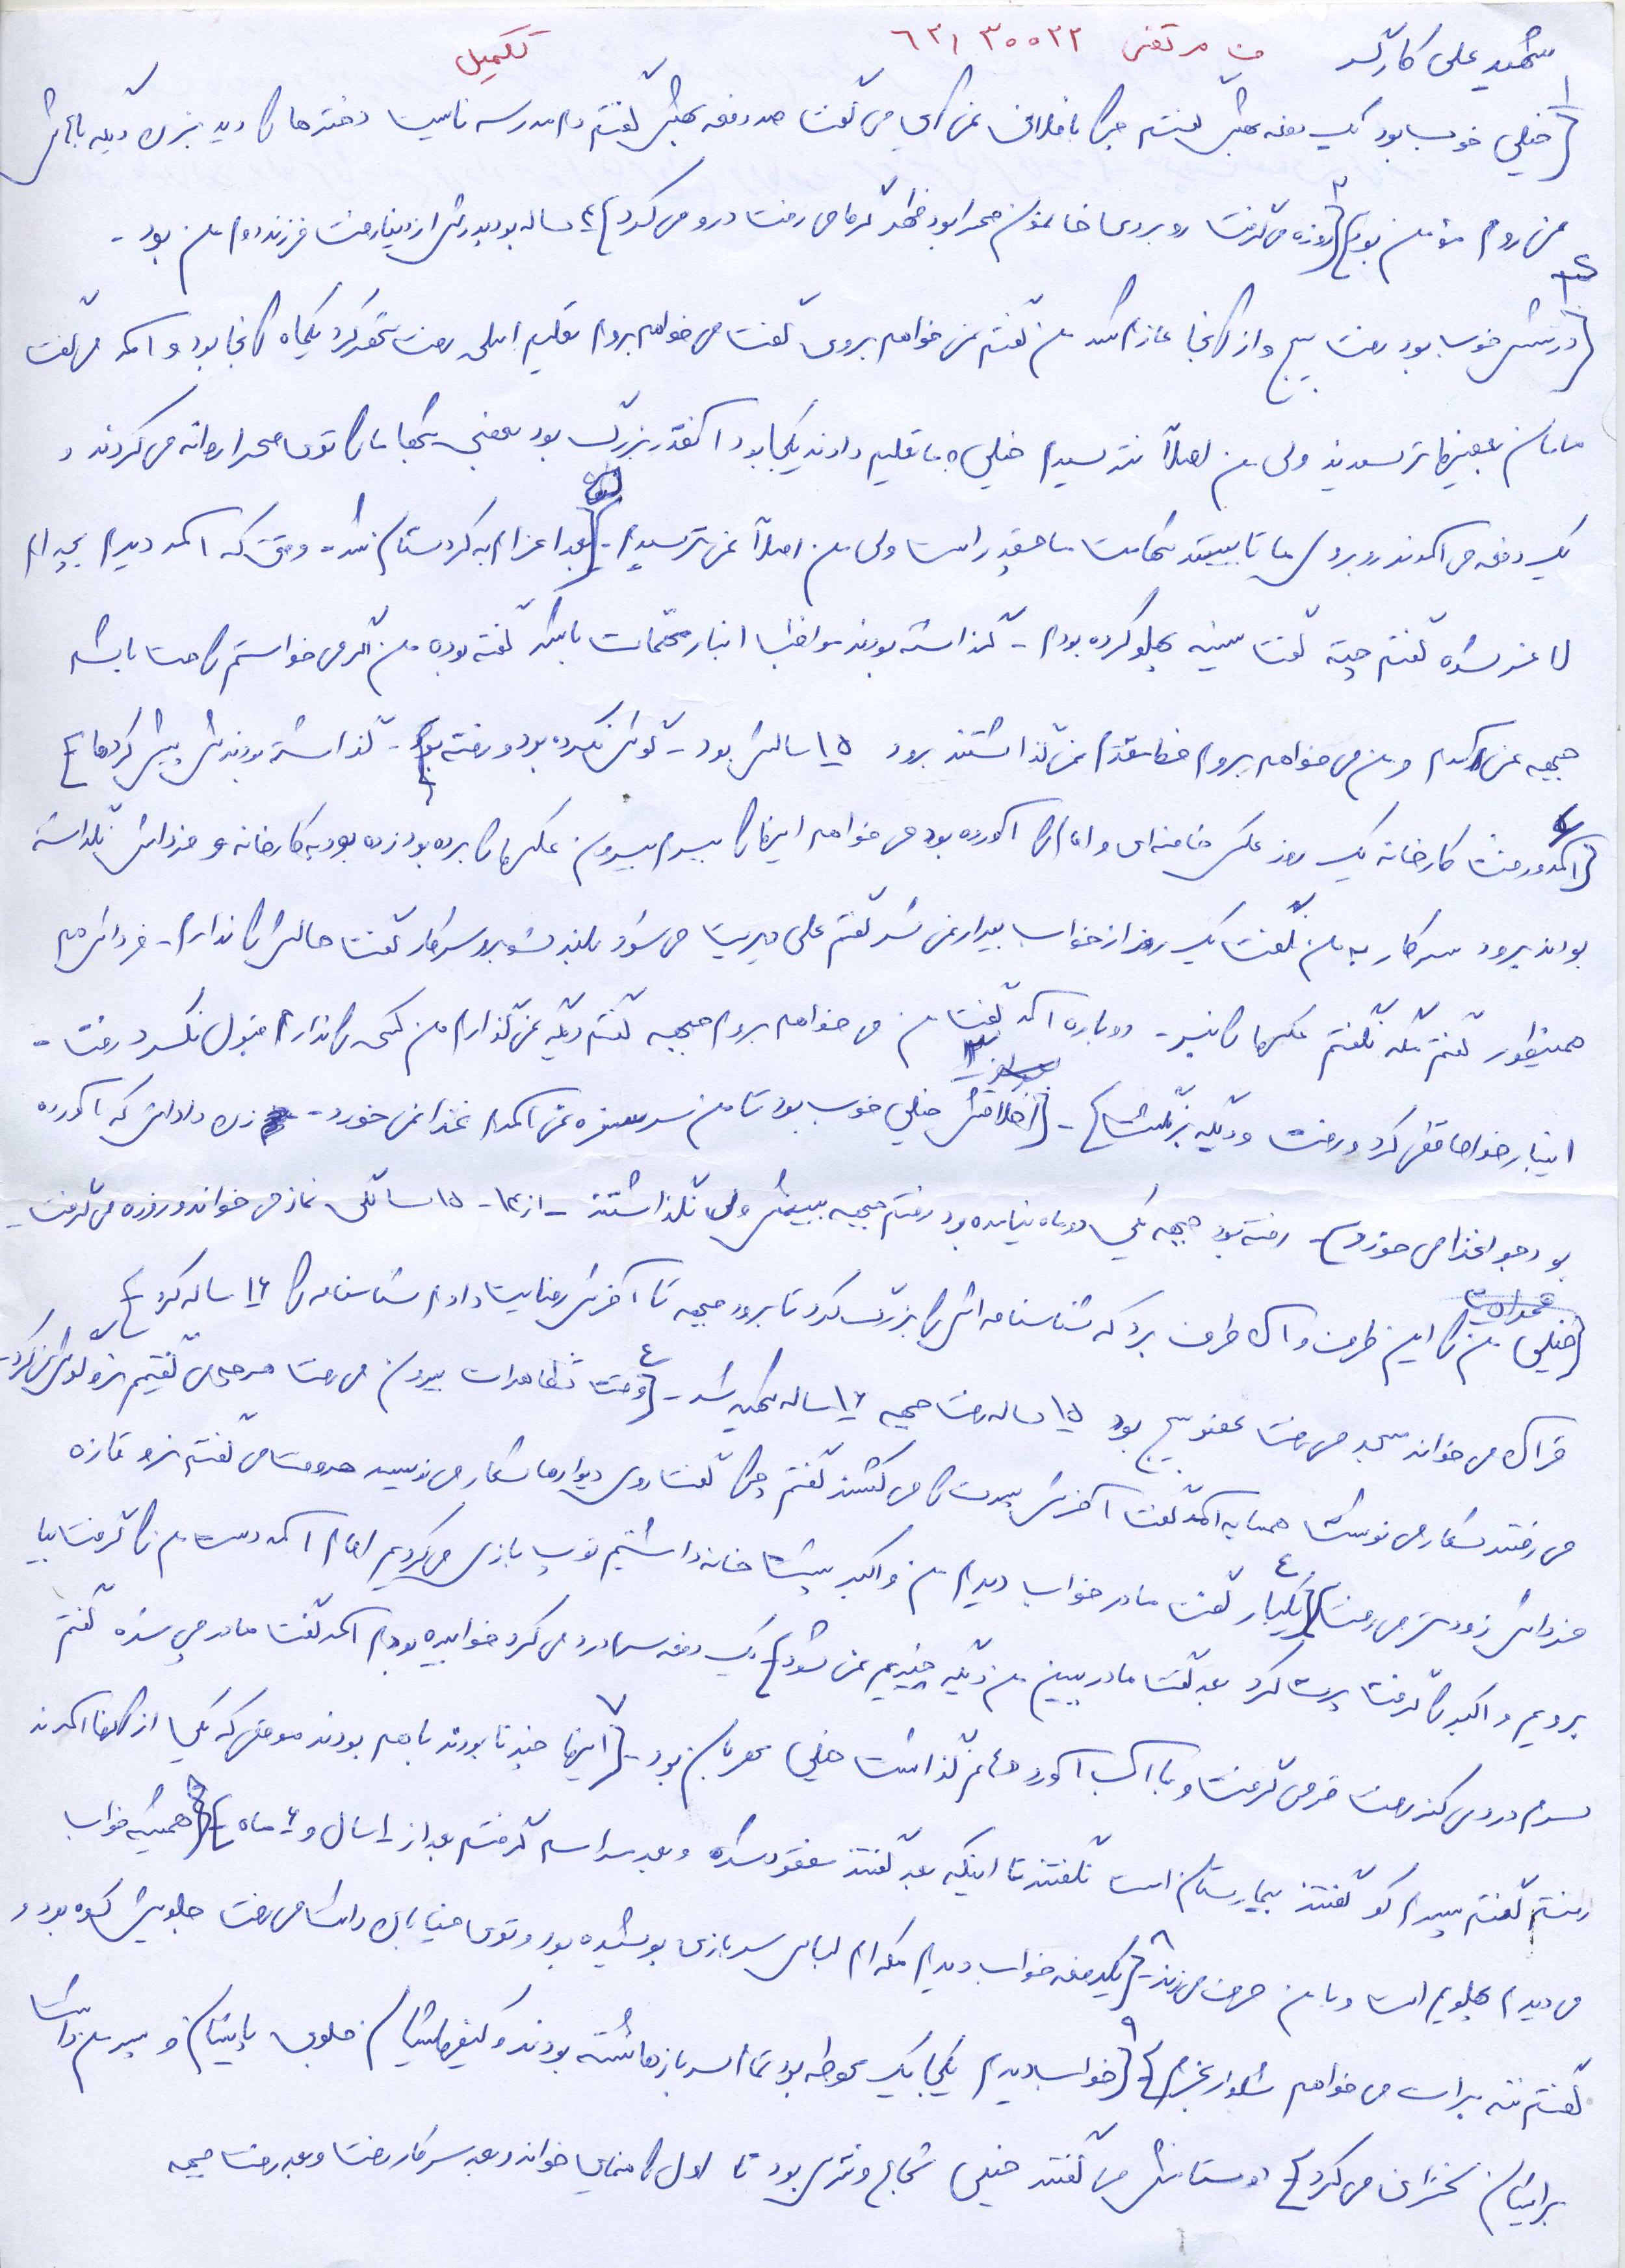 شهید علی کارگر ف مرتضی ۶۲۱۳۰۰۲۲ تکمیل
۱ {خیلی خوب بود یک دفعه بهش گفتم چرا با فلانی نمی آیی می گفت صد دفعه بهش گفتم دم مدرسه نایست دخترها را دید بزن دیگه باهاش
نمی روم مؤمن بود} ۳ {روزه می گرفت روبروی خانمون صحرا بود ظهر گرما می رفت درو می کرد} ۴ ساله بود پدرش از دنیا رفت فرزند دوم من بود -
{درسش خوب بود رفت بسیج و از آنجا عازم شد من گفتم نمی خواهم بروی گفت می خواهم بروم تعلیم ابلی رفت یکماه آنجا بود و آمد می گفت
مامان بعضیها ترسیدند ولی من اصلاً نترسیدم خیلی به ما تعلیم دادند یکجا بود آنقدر بزرگ بود بعضی شبها ما را توی صحرا روانه می کردند و
یک دفعه می آمدند روبروی ما تا ببینند شهامت ما چقدر است ولی من اصلاً نمی ترسیدم - {بعد اعزام به کردستان شد - وقتی که آمد دیدم بچه ام
لاغر شده گفتم چیه گفت سینه پهلو کرده بودم - گذاشته بودند مواظب انبار مهمات باشد گفته بود من اگر می خواستم راحت باشم
جبهه نمی آمدم و من می خواهم بروم خط مقدم نمی گذاشتند برود ۱۵ سالش بود - گوش نکرده بود و رفته بود - گذاشته بودندش پیش کردها}
{آمد و رفت کارخانه یک روز عکس خامنه ای و امام را آورده بود می خواهم اینها را ببرم بیرون عکسها را برده بود زده بود به کارخانه و فردایش نگذاشته
بودند برود سر کار به من نگفت یک روز از خواب بیدار نمی شد گفتم علی دیرت می شود بلند شو برو سر کار گفت حالش را ندارم - فردایش هم
همینطور گفتم مگه نگفتم عکسها را نبر - دوباره آمد گفت من می خواهم بروم جبهه گفتم دیگه نمی گذارم من کسی را ندارم قبول نکرد رفت -
اینبار خداحافظی کرد و رفت و دیگه برنگشت} - {اخلاقش خیلی خوب بود تا من سر سفره نمی آمدم غذا نمی خورد - زن داداش که آورده
بود جدا غذا می خورد} - رفته بود جبهه یکی دو ماه نیامده بود رفتم جبهه ببینمش ولی نگذاشتند - از ۱۴ - ۱۵ سالگی نماز می خواند و روزه می گرفت -
{خیلی من را این طرف و آن طرف برد که شناسنامه اش را بزرگ کرد تا برود جبهه تا آخرش رضایت دادم شناسنامه را ۱۶ ساله کرد}
قرآن می خواند مسجد می رفت عضو بسیج بود ۱۵ ساله رفت جبهه ۱۶ ساله شهید شد - ۴ {وقت تظاهرات بیرون می رفت هر چی می گفتیم نرو گوش نمی کرد -
می رفتند شعار می نوشت همسایه آمد گفت آخرش پسرت را می کشند گفتم چرا گفت روی دیوارها شعار می نویسد هر وقت می گفتم نرو تازه
فردایش زودتر می رفت} ۴ {یکبار گفت مادر خواب دیدم من و اکبر پشت خانه داشتیم توپ بازی می کردیم امام آمد دست من را گرفت بیا
برویم و اکبر را گرفت پرت کرد بعد گفت مادر ببین من دیگه چیزیم نمی شود} یک دفعه سرم درد می کرد خوابیده بودم آمد گفت مادر چی شده گفتم
سرم درد می کند رفت قرص گرفت و با آب آورد گذاشت خیلی مهربان بود - ۷ {اینها چند تا بودند با هم بودند موقعی که یکی از آنها آمدند
رفتم گفتم پسرم کو گفتند بیمارستان است نگفتند تا اینکه بعد گفتند مفقود شده و بعد مراسم گرفتیم بعد از ۱ سال و ۶ ماه} {همیشه خواب
می دیدم پهلویم است و با من حرف می زند - ۸ {یکدفعه خواب دیدم مکه ام لباس سربازی پوشیده بود و توی خیابان داشت می رفت جلویش کوه بود و
گفتم ننه برات می خواهم شلوار بخرم} ۹ {خواب دیدم یکجا یک محوطه بود تمام سربازها نشسته بودند و کیفهایشان جلوی پایشان و پسر من داشت
برایشان سخنرانی می کرد} دوستانش می گفتند خیلی شجاع و نترس بود تا اول راهنمایی خواند و بعد سر کار رفت و بعد رفت جبهه